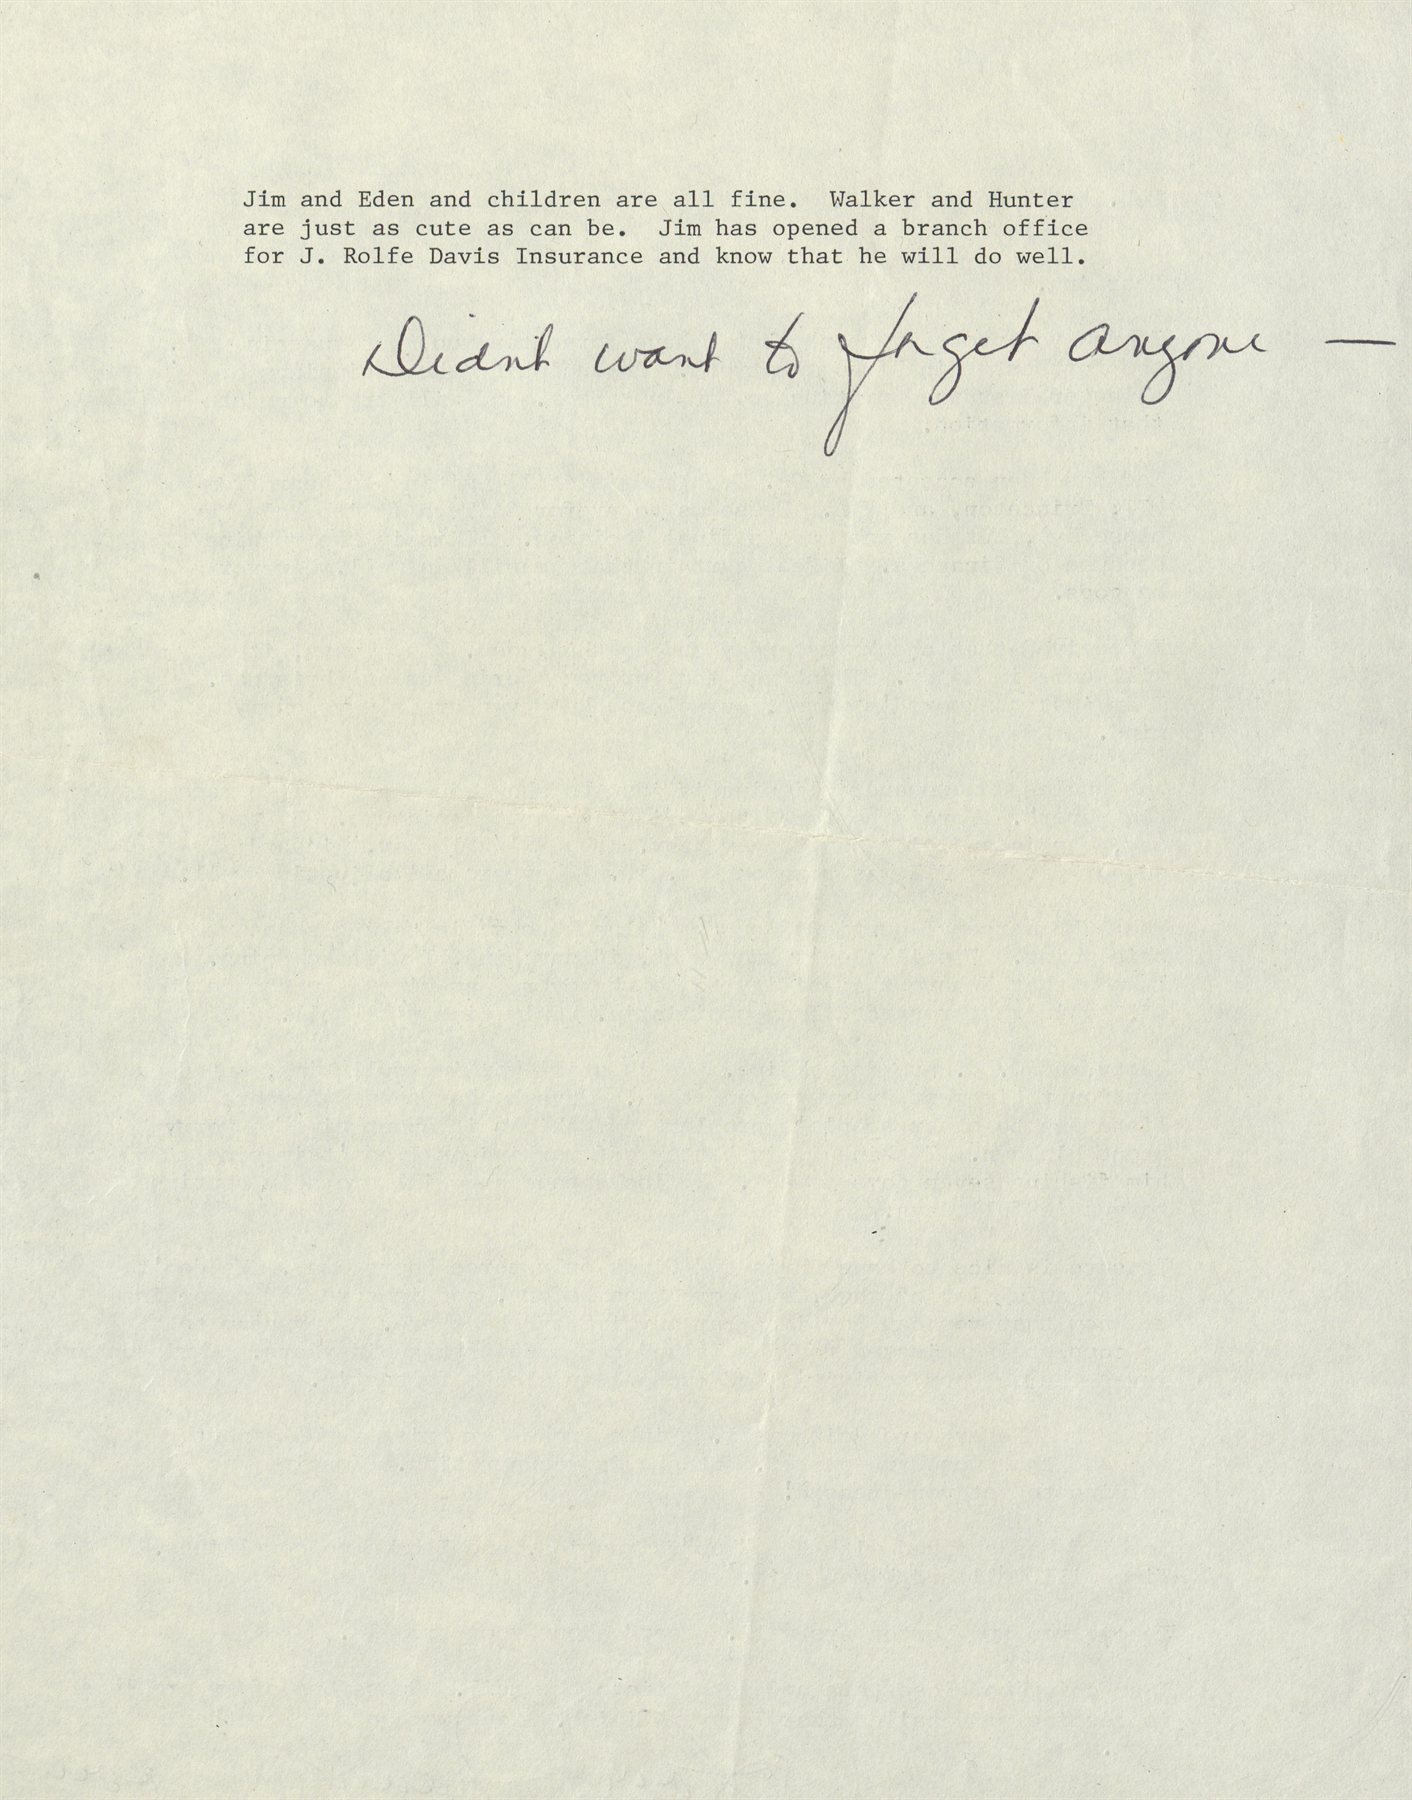 Jim and Eden and children are all fine.  Walker and Hunter
are just as cute as can be.  Jim has opened a branch office
for J. Rolfe Davis Insurance and know that he will do well.
Didn't want to forget anyone —